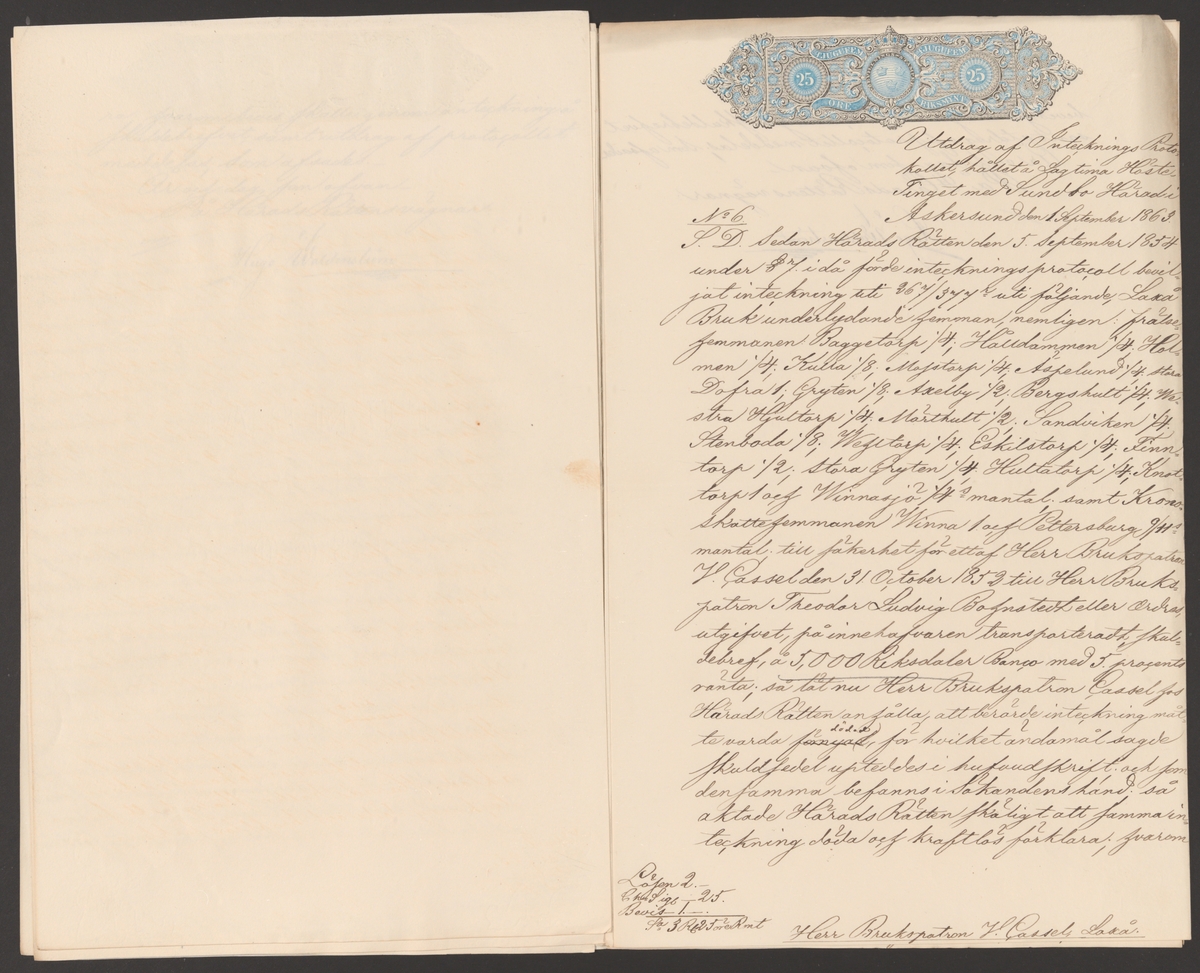 TJUGUFEM TJUGUFEM
25 25
ÖRE RIKSMYNT
Utdrag af Intecknings Proto-
kollet, hållet å Lagtima Höste-
Tinget med Sundbo Härad i
Askersund den 1 September 1863.
No 6
S. D. Sedan Härads Rätten den 5. September 1854
under § 7. i då förde inteckningsprotocoll bevil-
jat inteckning uti följande, Laxå
Bruk underlydande hemman, nemligen: frälse-
hemmanen Baggetorp 1/4; Halsdammen 1/4; Hol-
men 1/4; Kulla 1/8; Mosstorp 1/4; Äspelund 1/4; stora
Dofra 1; Gryten 1/8; Axelby 1/2; Bergshult 1/4; We-
stra Hjultorp 1/4; Mårthult 1/2; Sandviken 1/4;
Stenboda 1/8; 1/4; Eskilstorp 1/4; Finn-
torp 1/2; stora Gryten 1/4; Hultatorp 1/4; Knot-
torp 1 och Winnasjö 1/4 s mantal; samt Krono-
skattehemmanen Winna 1 och Pettersburg 9/11 s
mantal; till säkerhet för ett af Herr Brukspatron
V. Cassel den 31 October 1853 till Herr Bruks-
patron Theodor Ludvig Bohnstedt eller ordres
utgifvet, på innehafvaren transporteradt, skul-
debref, å 5,000 Riksdaler Banco med 5. procents
ränta; så lät nu Herr Brukspatron Cassel hos
Härads Rätten anhålla, att berörde inteckning måt-
te varda förnyad dödad, för hvilket ändamål sagde
skuldsedel upteddes i hufvudskrift; och som
densamma befanns i Sökandens hand: så
aktade Härads Rätten skäligt att samma in-
teckning döda och kraftlös förklara; hvarom
Lösen 2.—
25.
Bevis 1.—
Sa 3 Rd 25 öre Rmt
Herr Brukspatron V. Cassel, Laxå.